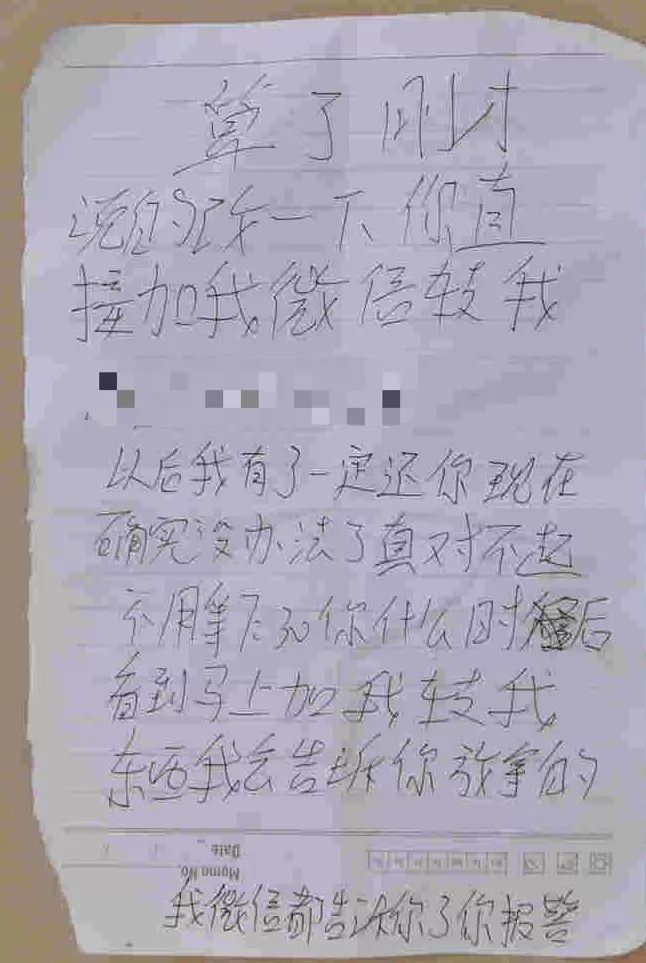 算了刚才
说的改一下你直
接加我微信转我
以后我有了一定还你现在
确实没办法了真对不起
不用等7:30你什么时后
看到马上加我转我
东西我会告诉你放拿的
Date
Memo No.
我微信都告诉你了你报警